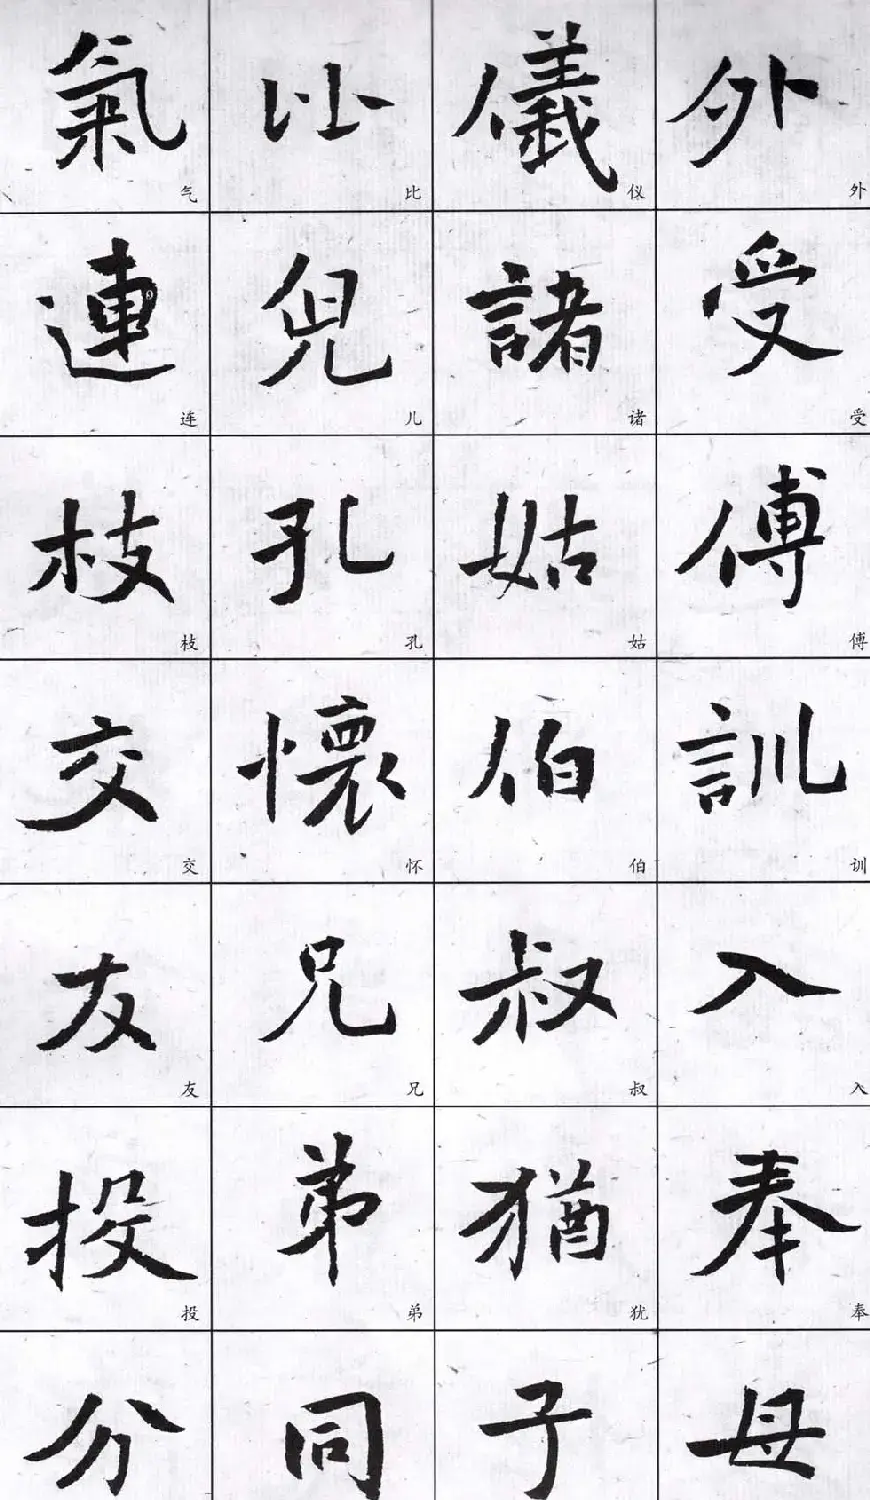 外受傅訓入奉母
外受傅训入奉
儀諸姑伯叔猶子
仪诸姑伯叔犹
比兒孔懷兄弟同
比儿孔怀兄弟
氣連枝交友投分
气连枝交友投